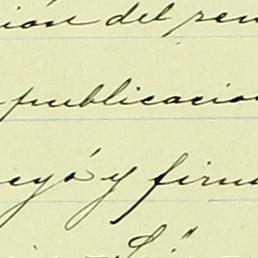 ión del ren
publicacion
eyó y firm